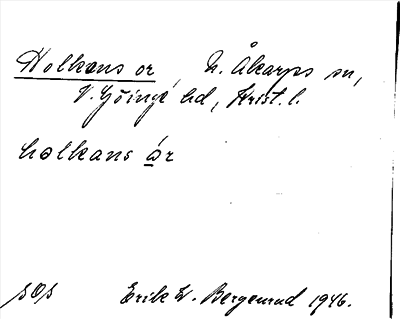 Holkans or, N. Åkarps sn,
V. Göinge hd, Krist. l.
holkans år
SOS Erik W. Bergenrud 1946.